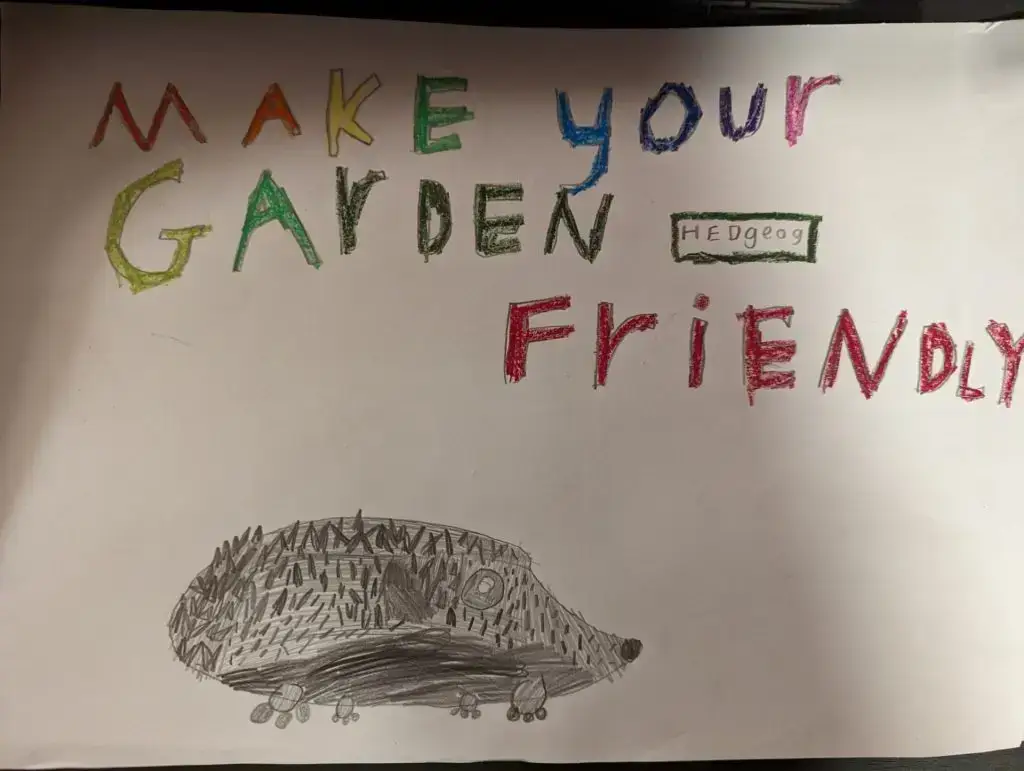 MAKE your
GArDEN HEDgeog
FriENDLY